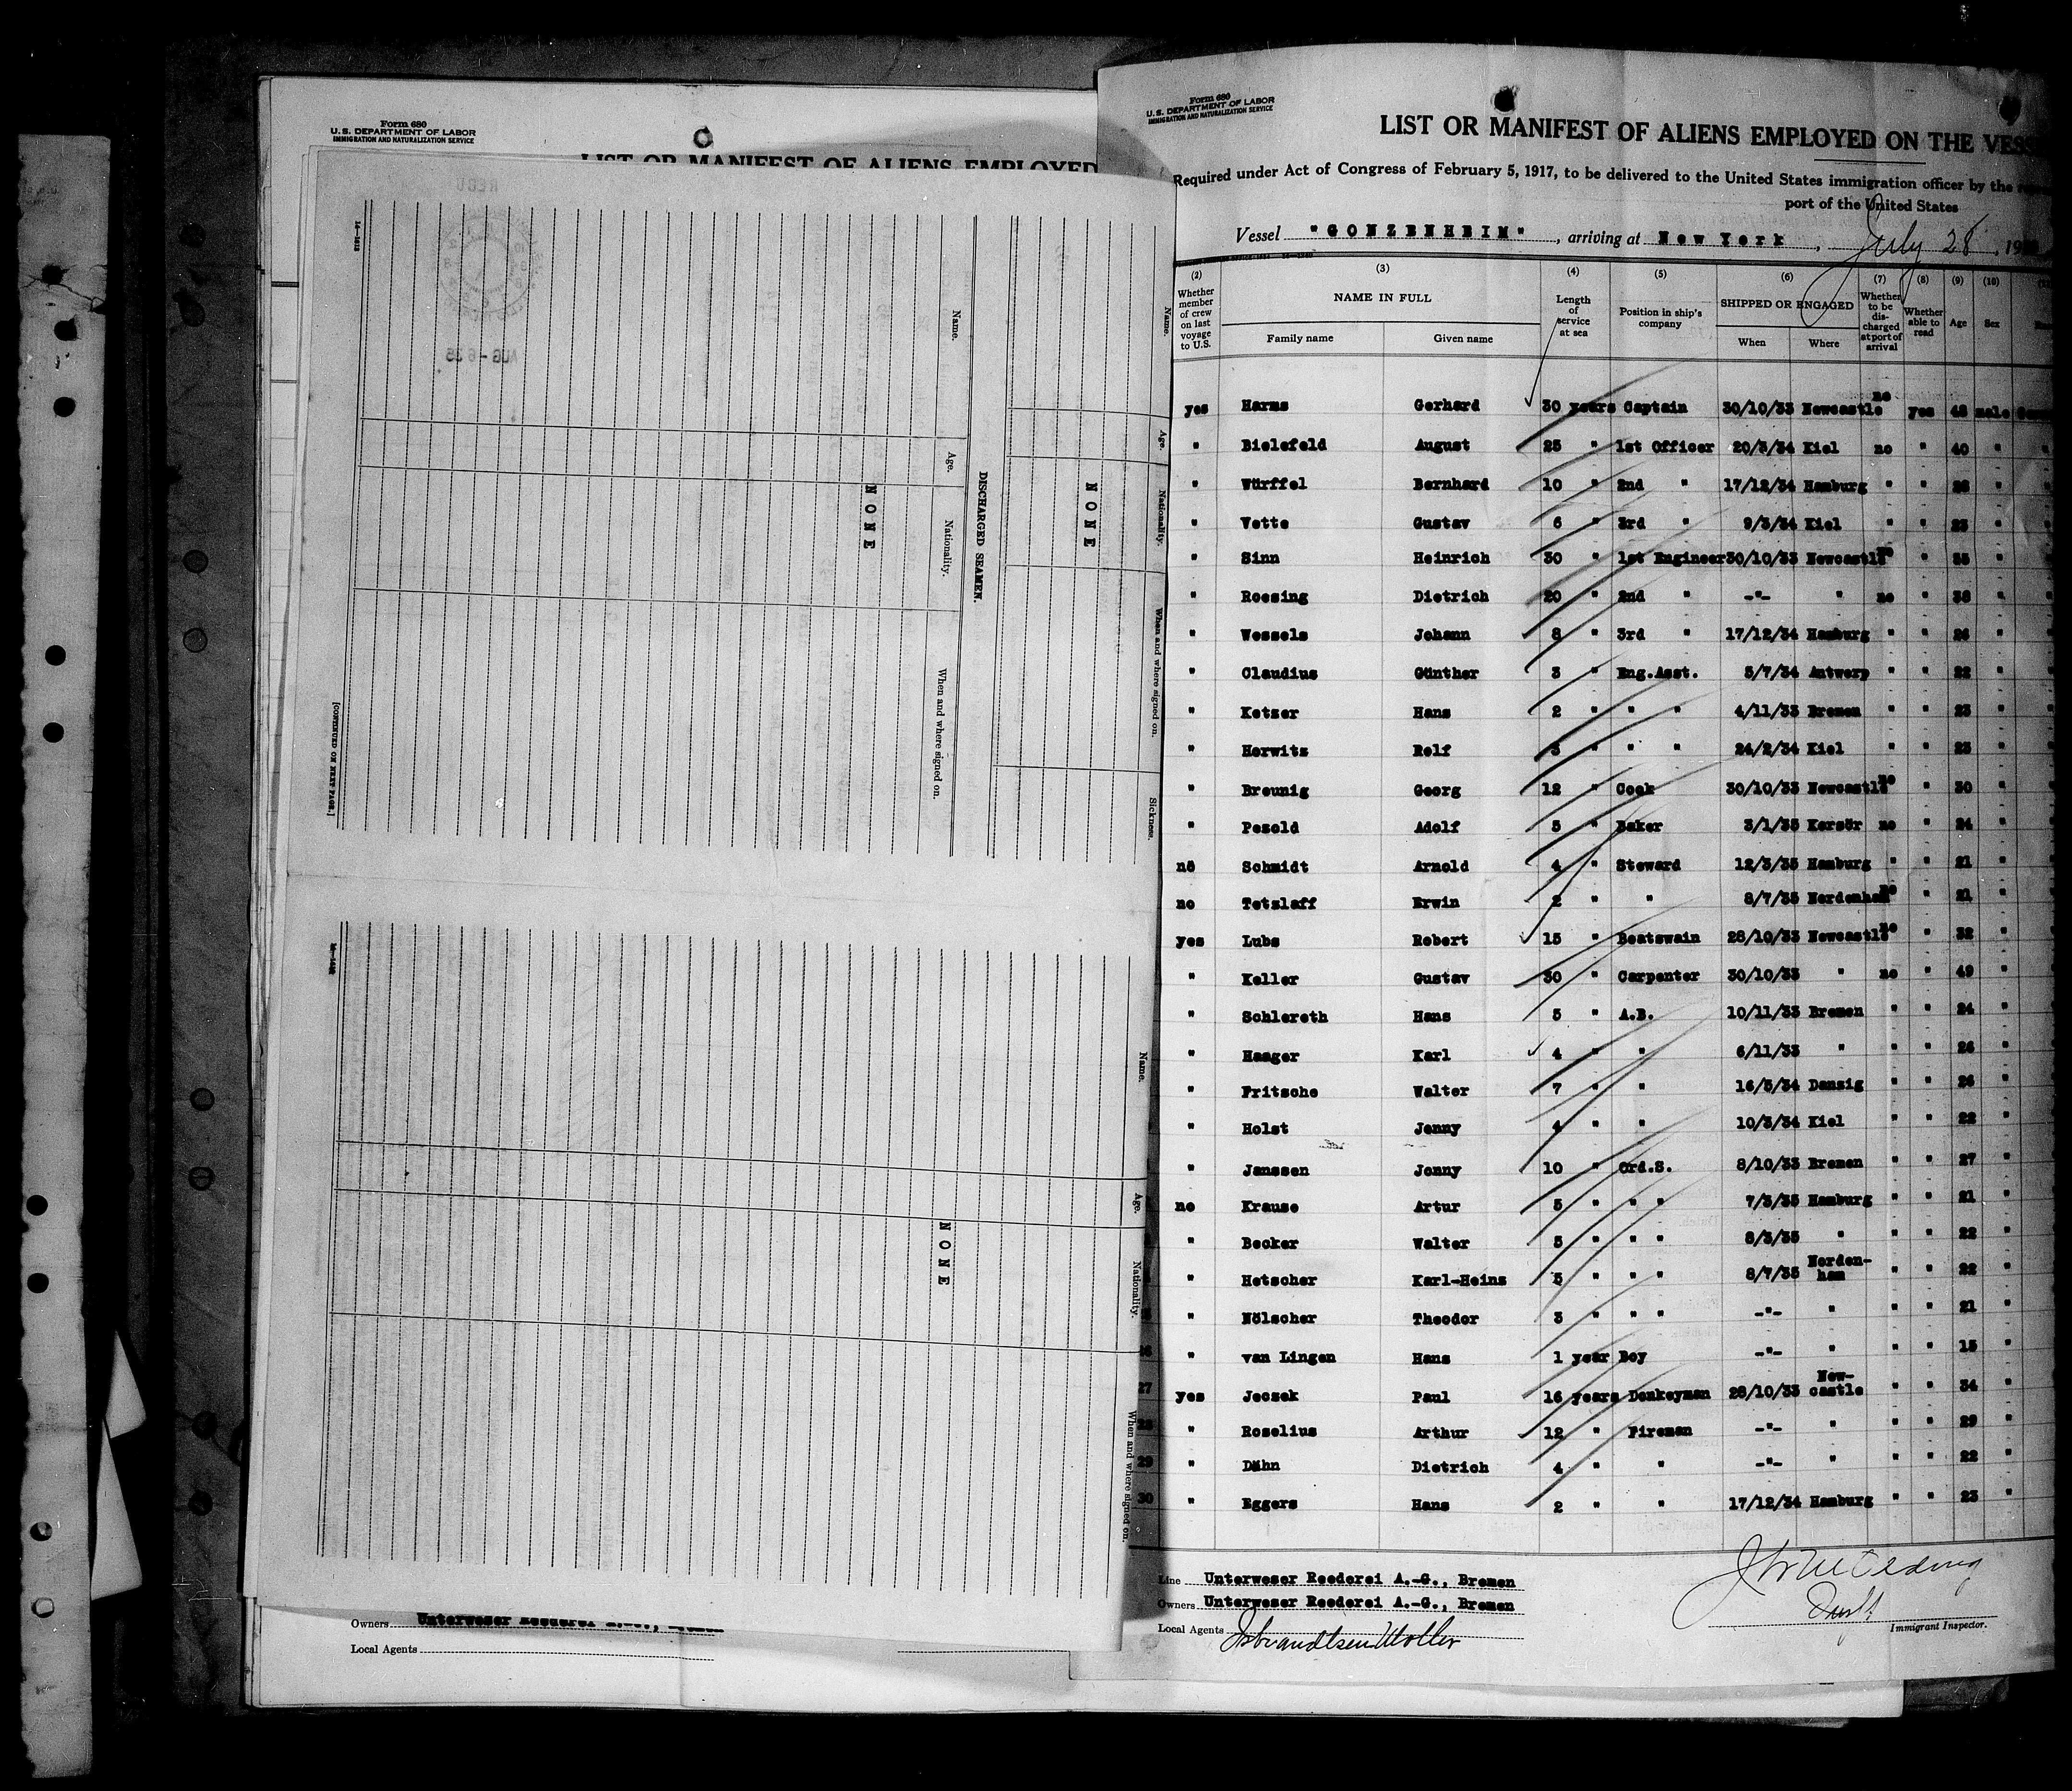 Form 680
U. S. DEPARTMENT OF LABOR
IMMIGRATION AND NATURALIZATION SERVICE
LIST OR MANIFEST OF ALIENS EMPLOYED
16—1612
Name.
Age.
Nationality.
When and where signed on.
Sickness.
NONE
DISCHARGED SEAMEN.
Name.
Age.
Nationality.
When and where signed on.
NONE
[CONTINUED ON NEXT PAGE.]
AUG -6 35
Name.
Age.
Nationality.
When and where signed on.
NONE
Owners Unterweser Reederei
Local Agents
Form 680
U. S. DEPARTMENT OF LABOR
IMMIGRATION AND NATURALIZATION SERVICE
LIST OR MANIFEST OF ALIENS EMPLOYED ON THE VESS
Required under Act of Congress of February 5, 1917, to be delivered to the United States immigration officer by the
port of the United States
Vessel "GONZENHEIM", arriving at New York, July 28, 19
(2) (3) (4) (5) (6) (7) (8) (9) (10)
Whether member of crew on last voyage to U.S. NAME IN FULL Family name Given name Length of service at sea Position in ship's company SHIPPED OR ENGAGED When Where Whether to be discharged at port of arrival Whether able to read Age Sex
yes Harms Gerhard 30 years Captain 30/10/33 Newcastle no yes 48 male
" Bielefeld August 25 " 1st Officer 20/3/34 Kiel no " 40 "
" Würffel Bernhard 10 " 2nd " 17/12/34 Hamburg " " 28 "
" Vette Gustav 6 " 3rd " 9/3/34 Kiel " " 23 "
" Sinn Heinrich 30 " 1st Engineer 30/10/33 Newcastle no " 55 "
" Roesing Dietrich 20 " 2nd " -"- " no " 38 "
" Wessels Johann 8 " 3rd " 17/12/34 Hamburg " " 26 "
" Claudius Günther 3 " Eng.Asst. 5/7/34 Antwerp " " 22 "
" Ketzer Hans 2 " " " 4/11/33 Bremen " " 23 "
" Horwitz Rolf 3 " " " 24/2/34 Kiel " " 23 "
" Breunig Georg 12 " Cook 30/10/33 Newcastle no " 30 "
" Pezold Adolf 5 " Baker 3/1/35 Korsör no " 24 "
no Schmidt Arnold 4 " Steward 12/3/35 Hamburg " " 21 "
no Tetzlaff Erwin 2 " " 8/7/35 Nordenham no " 21 "
yes Lubs Robert 15 " Boatswain 28/10/33 Newcastle no " 32 "
" Keller Gustav 30 " Carpenter 30/10/33 " no " 49 "
" Schlereth Hans 5 " A.B. 10/11/33 Bremen " " 24 "
" Haager Karl 4 " " 6/11/33 " " " 26 "
" Fritsche Walter 7 " " 16/5/34 Danzig " " 26 "
" Holst Jonny 4 " " 10/3/34 Kiel " " 22 "
" Janssen Jonny 10 " Ord.S. 8/10/33 Bremen " " 27 "
no Krause Artur 5 " " " 7/3/35 Hamburg " " 21 "
" Becker Walter 5 " " " 8/3/35 " " " 22 "
" Hetscher Karl-Heinz 5 " " " 8/7/35 Norden-ham " " 22 "
" Nölscher Theodor 3 " " " -"- " " " 21 "
" van Lingen Hans 1 year Boy -"- " " " 15 "
27 yes Jeczek Paul 16 years Donkeyman 28/10/33 New-castle " " 34 "
28 " Roselius Arthur 12 " Fireman -"- " " " 29 "
29 " Dähn Dietrich 4 " " -"- " " " 22 "
30 " Eggers Hans 2 " " 17/12/34 Hamburg " " 23 "
Line Unterweser Reederei A.-G., Bremen
Owners Unterweser Reederei A.-G., Bremen
Local Agents Isbrandtsen Moller
Immigrant Inspector.